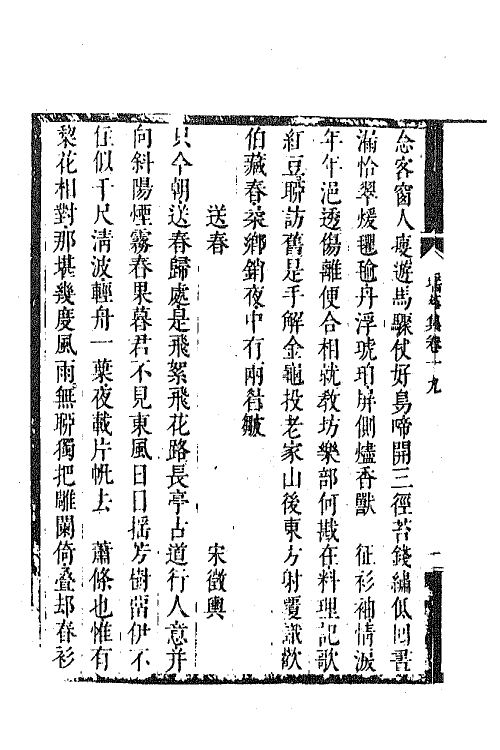 念客窗人瘦遊馬驟仗好鳥啼開三徑苔錢繡似回書
滿恰翠煖氍毹舟浮琥珀屏側燼香獸 征衫袖情淚
年年浥透傷離便合相就教坊樂部何戡在料理記歌
紅豆聯訪舊是手解金龜投老家山後東方射覆識歡
伯藏春桑鄉銷夜中有兩眉皺
送春 宋徵輿
只今朝送春歸處是飛絮飛花路長亭古道行人意并
向斜陽煙霧春果暮君不見東風日日搖芳樹留伊不
住似千尺清波輕舟一葉夜載片帆去 蕭條也惟有
梨花相對那堪幾度風雨無聊獨把雕闌倚疊却春衫
集卷十九
一